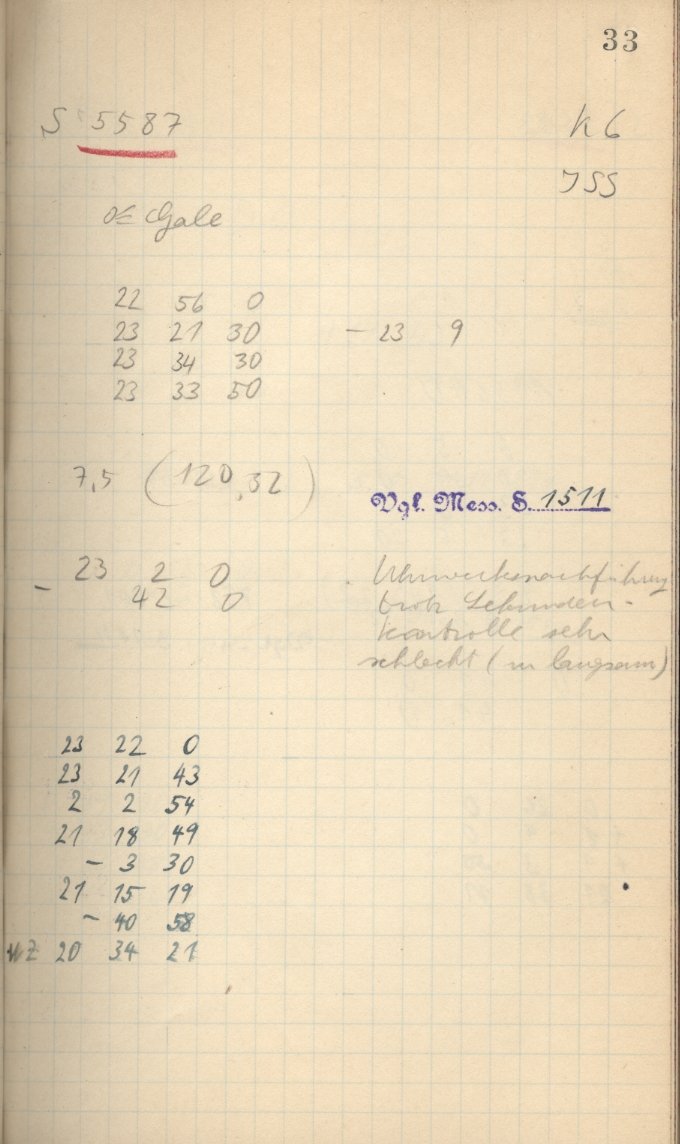 33
S 5587
K 6
JSS
OE Gale
22 56 0
23 21 30 - 23 9
23 34 30
23 33 50
7,5 (120,32)
Vgl. Mess. S. 1511
23 2 0
- 42 0
Uhrwerksnachführung
trotz Sekunden-
kontrolle sehr
schlecht (zu langsam)
23 22 0
23 21 43
2 2 54
21 18 49
- 3 30
21 15 19
- 40 58
WZ 20 34 21